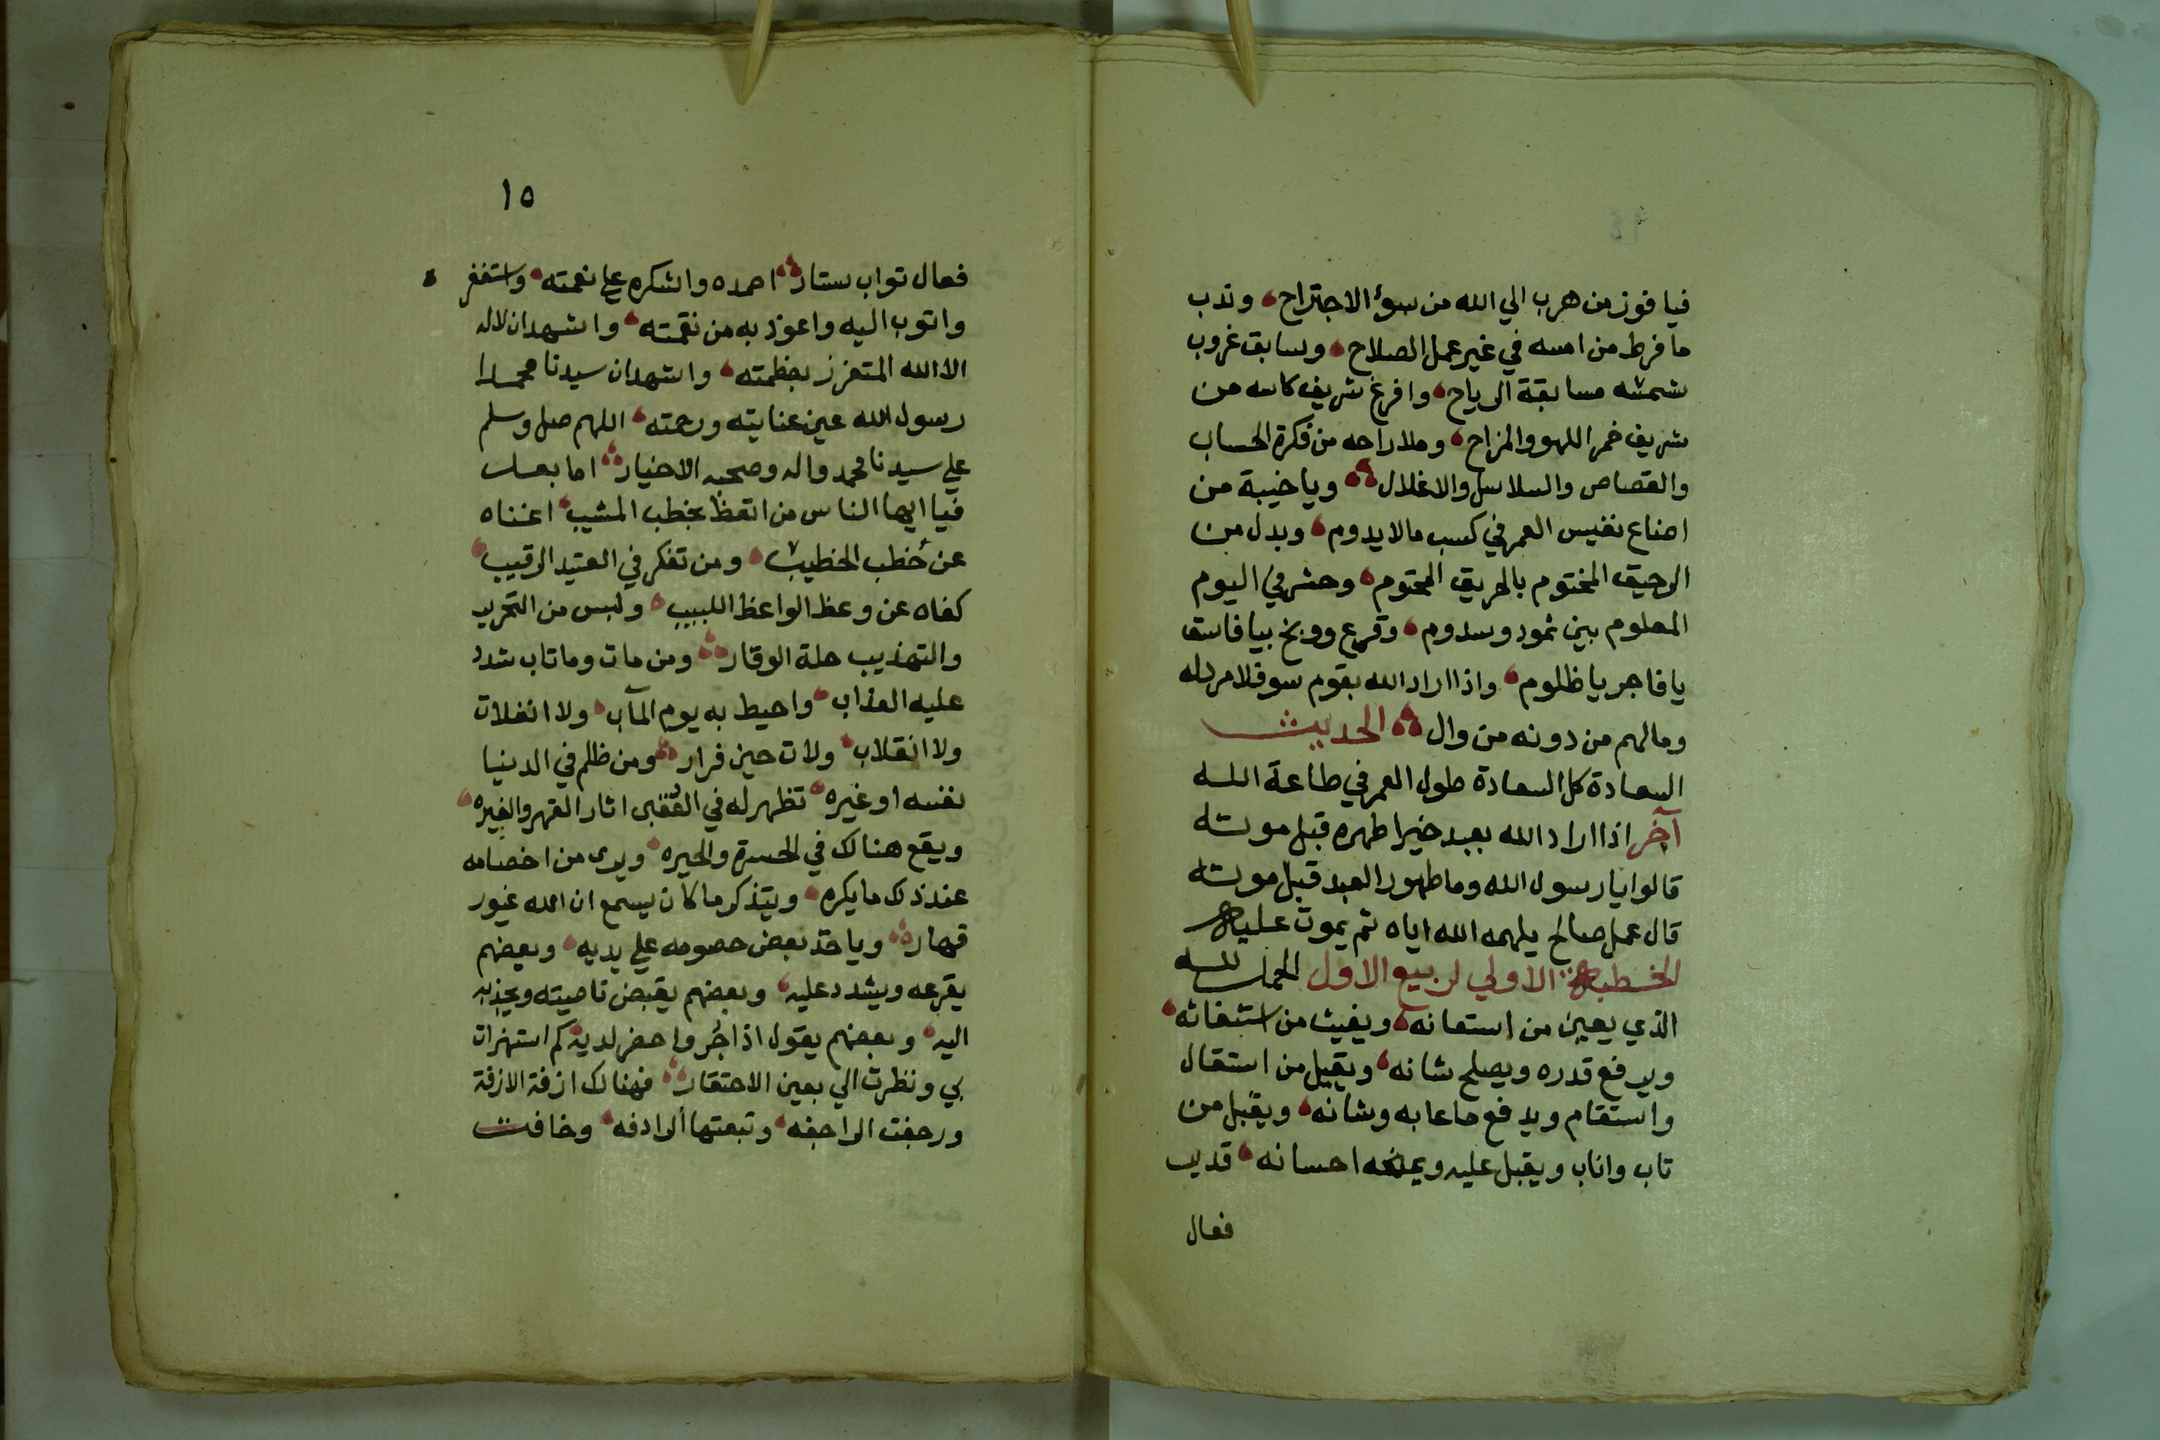 فيا فوز من هرب الي الله من سوء الاجتراح وندب
ما فرط من امسه في غير عمل الصلاح وسابق غروب
شمسه مسابقة الرياح وافرغ شريف كاسه من
شريف خمر اللهو والمزاح وملا راحه من فكرة الحساب
والقصاص والسلاسل والاغلال وياخيبة من
اضاع نفيس العمر في كسب مالا يدوم وبدل من
الرحيق المختوم بالحريق المحتوم وحشر في اليوم
المعلوم بين ثمود وسدوم وقرع ووبخ بيا فاسق
يا فاجر يا ظلوم واذا اراد الله بقوم سوءا فلا مرد له
وما لهم من دونه من وال الحديث
السعادة كل السعادة طول العمر في طاعة الله
آخر اذا اراد الله بعبد خيرا طهره قبل موته
قالوا يا رسول الله وما طهور العبد قبل موته
قال عمل صالح يلهمه الله اياه ثم يموت عليه
الخطبة الاولي لربيع الاول الحمد لله
الذي يعين من استعانه ويغيث من استغاثه
ويرفع قدره ويصلح شانه ويقيل من استقال
واستقام ويدفع ما عابه وشانه ويقبل من
تاب واناب ويقبل عليه ويمنحه احسانه قدير
فعال
١٥
فعال تواب ستار احمده واشكره علي نعمته واستغفر
واتوب اليه واعوذ به من نقمته واشهد ان لا اله
الا الله المتعزز بعظمته واشهد ان سيدنا محمدا
رسول الله عين عنايته ورحمته اللهم صل وسلم
علي سيدنا محمد واله وصحبه الاخيار اما بعد
فيا ايها الناس من اتعظ بخطب المشيب اغناه
عن خطب الخطيب ومن تفكر في العتيد الرقيب
كفاه عن وعظ الواعظ اللبيب ولبس من التجريد
والتهذيب حلة الوقار ومن مات وما تاب شدد
عليه العذاب واحيط به يوم المآب ولا انفلات
ولا انقلاب ولات حين فرار ومن ظلم في الدنيا
نفسه او غيره تظهر له في العقبى اثار القهر والغيره
ويقع هناك في الحسرة والحيره ويرى من اخصامه
عند ذلك ما يكره ويتذكر ما كان يسمع ان الله غيور
قهار وياخذ بعض خصومه علي يديه وبعضهم
يقرعه ويشدد عليه وبعضهم يقبض ناصيته ويجذبه
اليه وبعضهم يقول اذا جُر واحضر لديه كم استهزات
بي ونظرت الي بعين الاحتقار فهناك ازفة الازفة
ورجفت الراجفه وتبعتها الرادفه وخافت